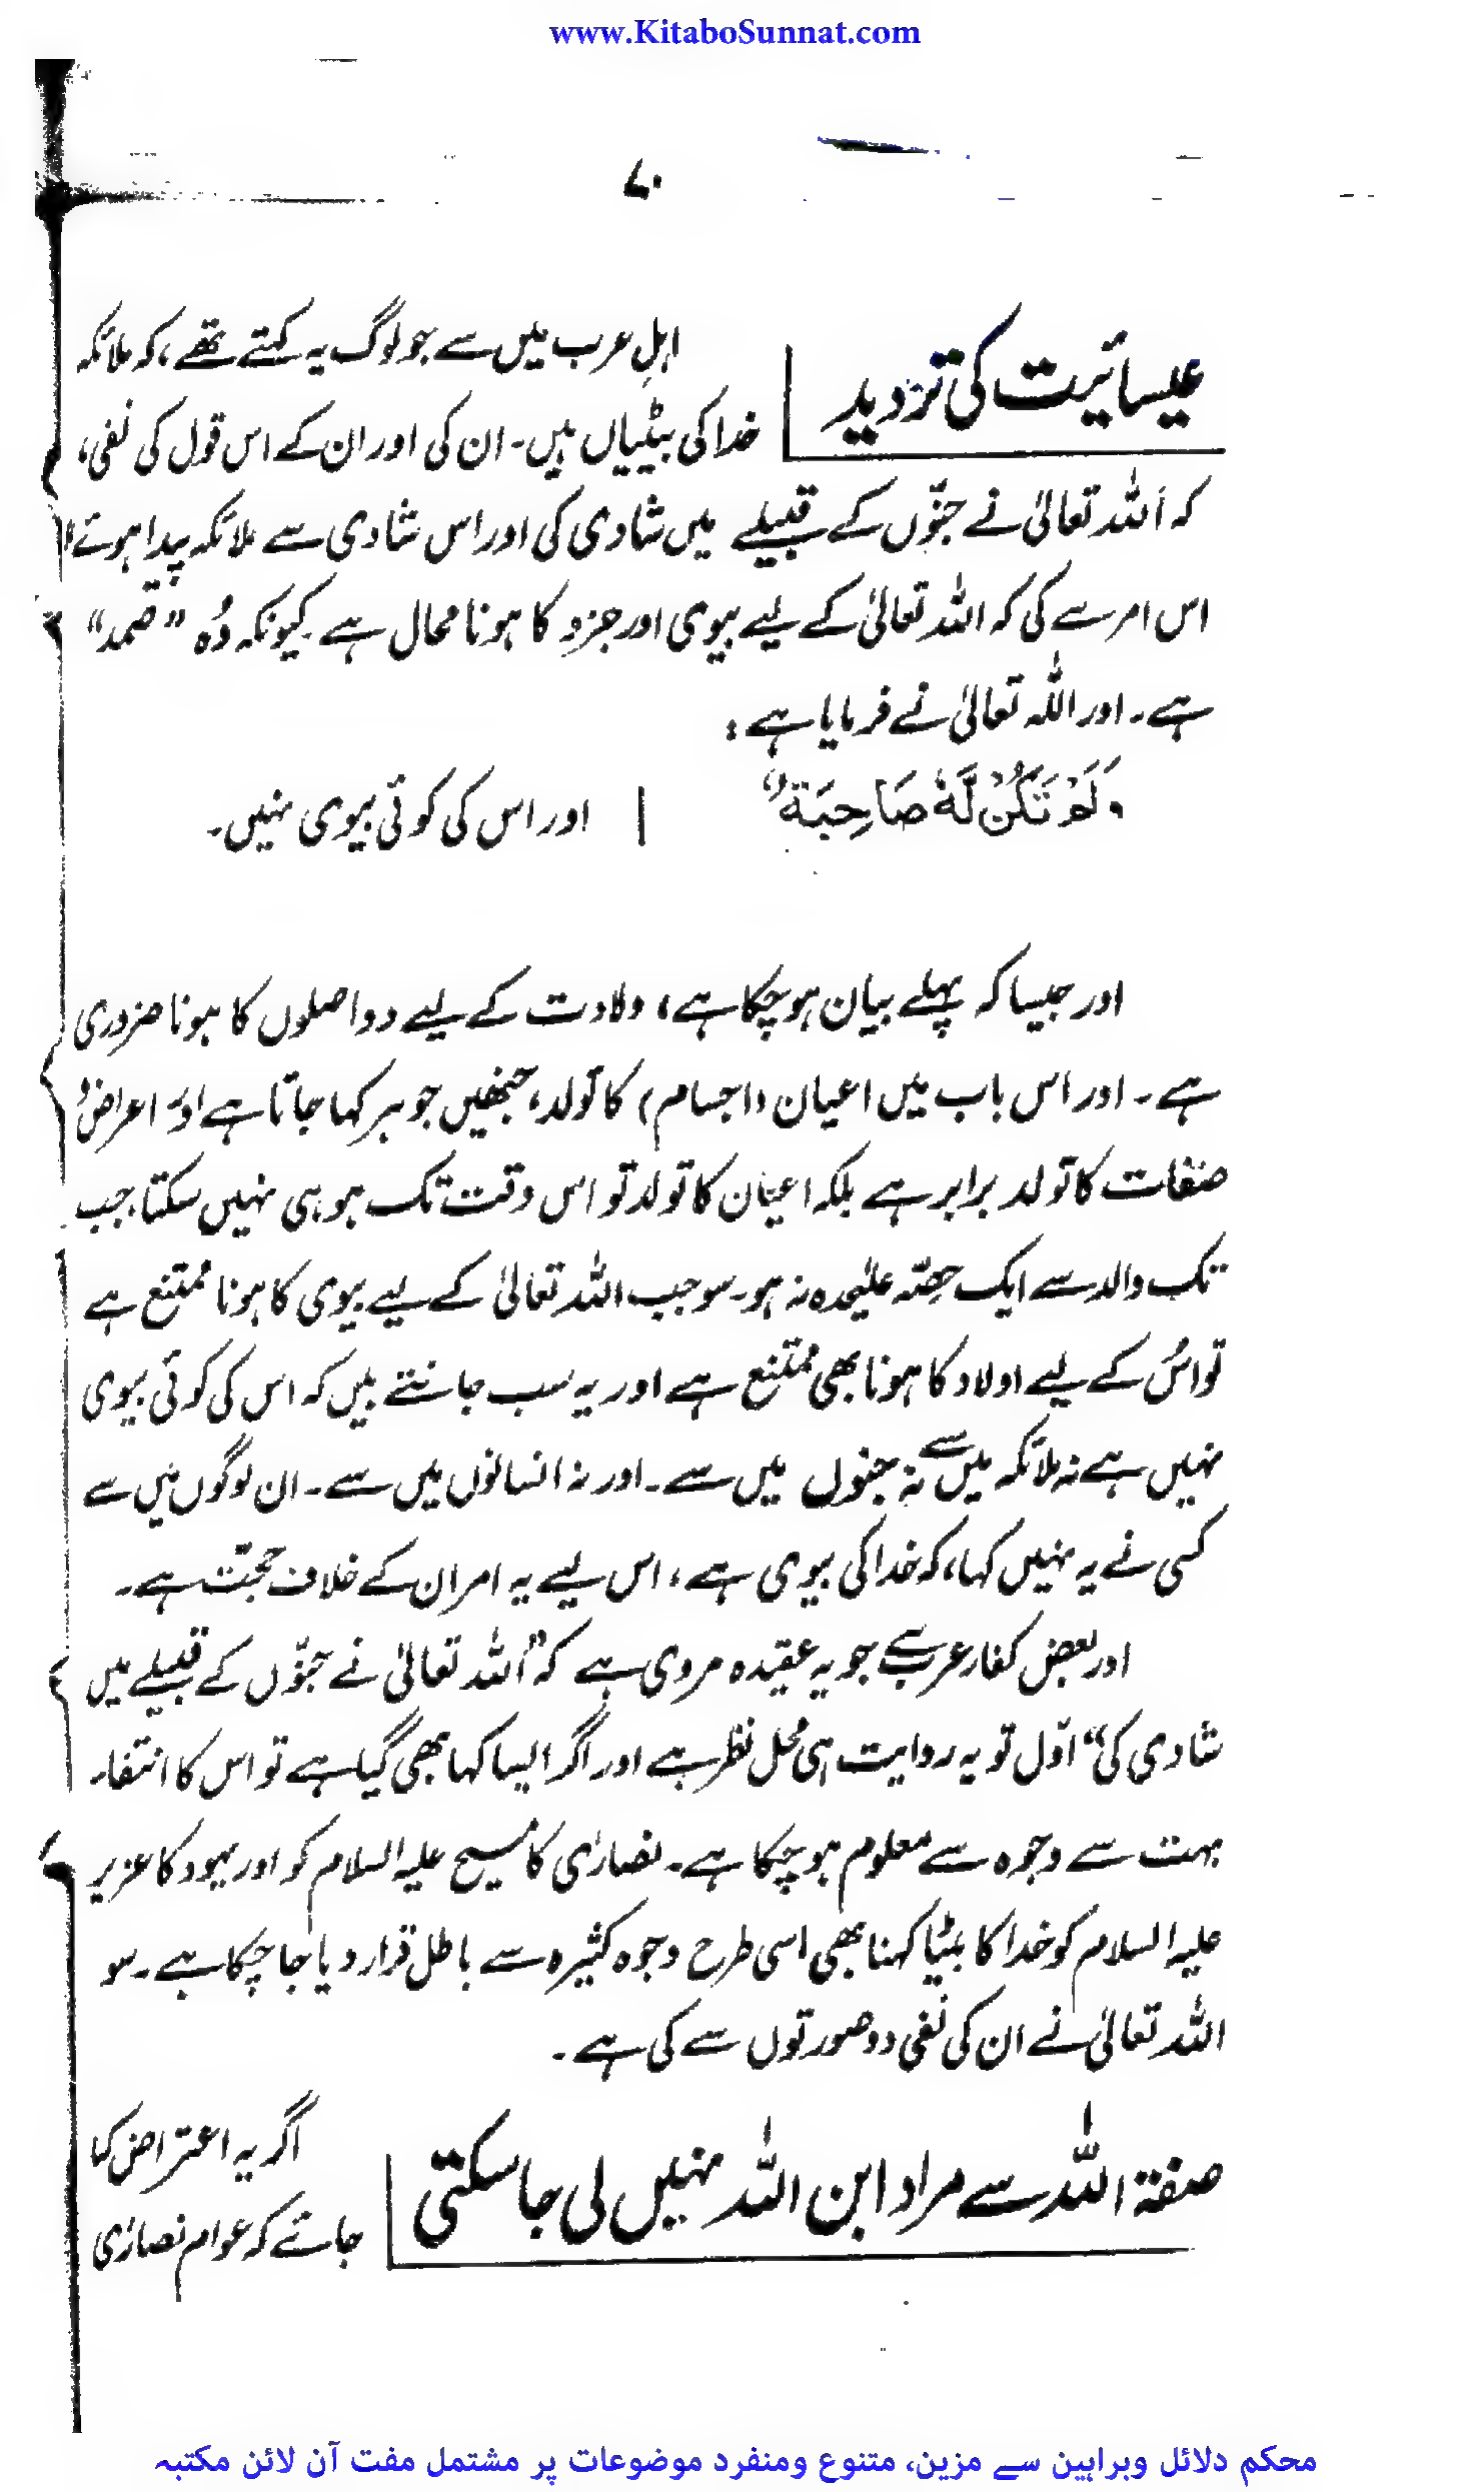 www.KitaboSunnat.com
۷۰
عیسائیت کی تردید
اہلِ عرب میں سے جو لوگ یہ کہتے تھے، کہ ملائکہ
خدا کی بیٹیاں ہیں۔ ان کی اور ان کے اس قول کی نفی،
کہ اللہ تعالیٰ نے جنّوں کے قبیلے میں شادی کی اور اس شادی سے ملائکہ پیدا ہوئے"
اس امر سے کی کہ اللہ تعالیٰ کے لیے بیوی اور جزو کا ہونا محال ہے کیونکہ وُہ "صمد"
ہے۔ اور اللہ تعالیٰ نے فرمایا ہے:
وَلَمْ تَكُنْ لَّهٗ صَاحِبَةٌ
اور اس کی کوئی بیوی نہیں۔
اور جیسا کہ پہلے بیان ہو چکا ہے، ولادت کے لیے دو اصلوں کا ہونا ضروری
ہے۔ اور اس باب میں اعیان (اجسام) کا تولد، جنھیں جوہر کہا جاتا ہے اور اعراض و
صفات کا تولد برابر ہے بلکہ اعیان کا تولد تو اس وقت تک ہو ہی نہیں سکتا، جب
تک والد سے ایک حصّہ علیٰحدہ نہ ہو۔ سو جب اللہ تعالیٰ کے لیے بیوی کا ہونا ممتنع ہے
تو اُس کے لیے اولاد کا ہونا بھی ممتنع ہے اور یہ سب جانتے ہیں کہ اس کی کوئی بیوی
نہیں ہے نہ ملائکہ میں سے نہ جنوں میں سے۔ اور نہ انسانوں میں سے۔ ان لوگوں میں سے
کسی نے یہ نہیں کہا، کہ خدا کی بیوی ہے، اس لیے یہ امر ان کے خلاف حجّت ہے۔
اور بعض کفار عرب سے جو یہ عقیدہ مروی ہے کہ "اللہ تعالیٰ نے جنّوں کے قبیلے میں
شادی کی" اوّل تو یہ روایت ہی محل نظر ہے اور اگر ایسا کہا بھی گیا ہے تو اس کا انتفاء
بہت سے وجوہ سے معلوم ہو چکا ہے۔ نصاریٰ کا مسیح علیہ السلام کو اور یہود کا عزیر
علیہ السلام کو خدا کا بیٹا کہنا بھی اسی طرح وجوہ کثیرہ سے باطل قرار دیا جا چکا ہے۔ سو
اللہ تعالیٰ نے ان کی نفی دو صورتوں سے کی ہے۔
صفۃ اللہ سے مراد ابن اللہ نہیں لی جا سکتی
اگر یہ اعتراض کیا
جائے کہ عوام نصاریٰ
محکم دلائل وبراہین سے مزین، متنوع ومنفرد موضوعات پر مشتمل مفت آن لائن مکتبہ